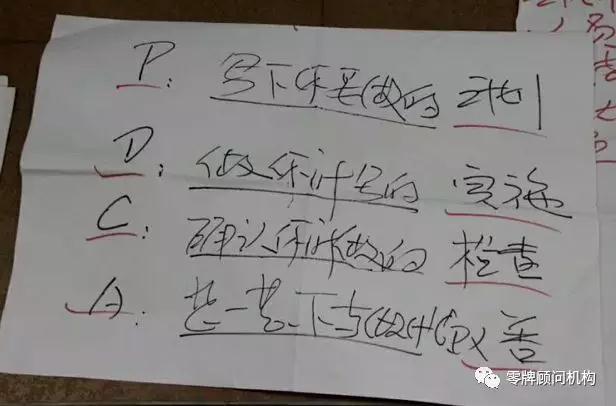 P: 写下你要做的 计划
D: 做你所写的 实施
C: 确认你所做的 检查
A: 一 下 改善
零牌顾问机构